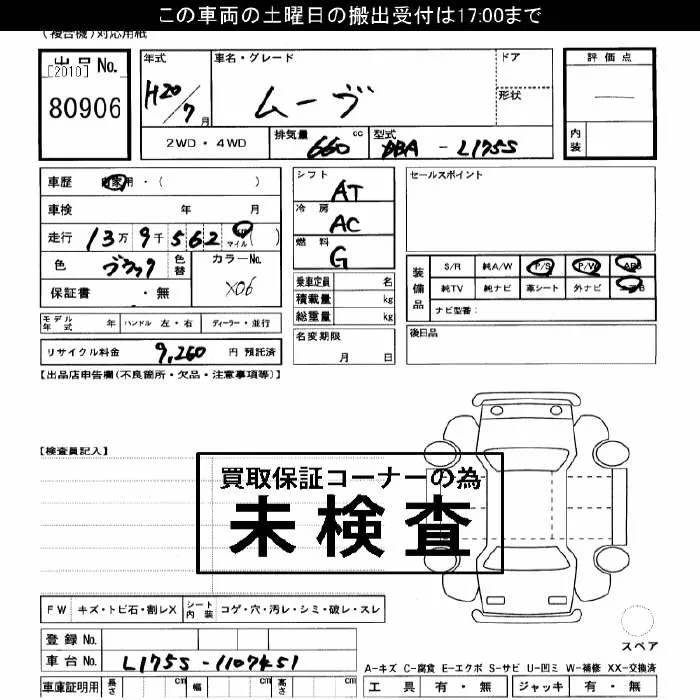 この車両の土曜日の搬出受付は17:00まで
(複合機)対応用紙
出品 No.
[2010]
80906
年式
H20/7 月
車名・グレード
ムーヴ
ドア
形状
評価点
内装
2WD・4WD
排気量 660 cc
型式 DBA - L175S
車歴 自家用・( )
車検 年 月
走行 13万9千562 マイル( )
色 ブラック 色替
カラーNo. X06
保証書 ・無
モデル年式 年 ハンドル 左・右 ディーラー・並行
リサイクル料金 9,260 円 預託済
シフト AT
冷房 AC
燃料 G
乗車定員 名
積載量 kg
総重量 kg
名変期限
月 日
セールスポイント
装備品
S/R 純A/W P/S P/W ABS
純TV 純ナビ 革シート 外ナビ
ナビ型番:
後日品
【出品店申告欄(不良箇所・欠品・注意事項等)】
【検査員記入】
買取保証コーナーの為
未検査
FW キズ・トビ石・割レX シート内装 コゲ・穴・汚レ・シミ・破レ・スレ
登録No.
車台No. L175S-1107451
車庫証明用 長さ cm 幅 cm 高さ cm
スペア
A-キズ C-腐食 E-エクボ S-サビ U-凹ミ W-補修 XX-交換済
工具 有・無 ジャッキ 有・無